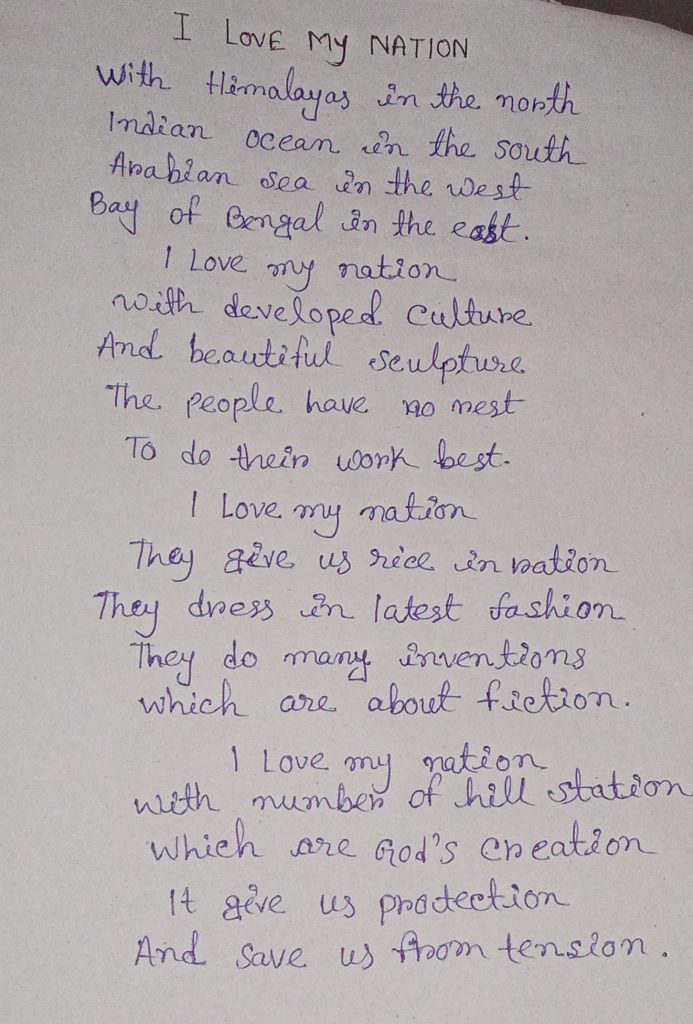 I LOVE My NATION
With Himalayas in the north
Indian ocean in the south
Arabian sea in the west
Bay of Bengal in the east.
I Love my nation
with developed culture
And beautiful sculpture
The people have no rest
To do their work best.
I Love my nation
They give us rice in ration
They dress in latest fashion
They do many inventions
which are about fiction.
I Love my nation
with number of hill station
Which are God's creation
It give us protection
And save us from tension.